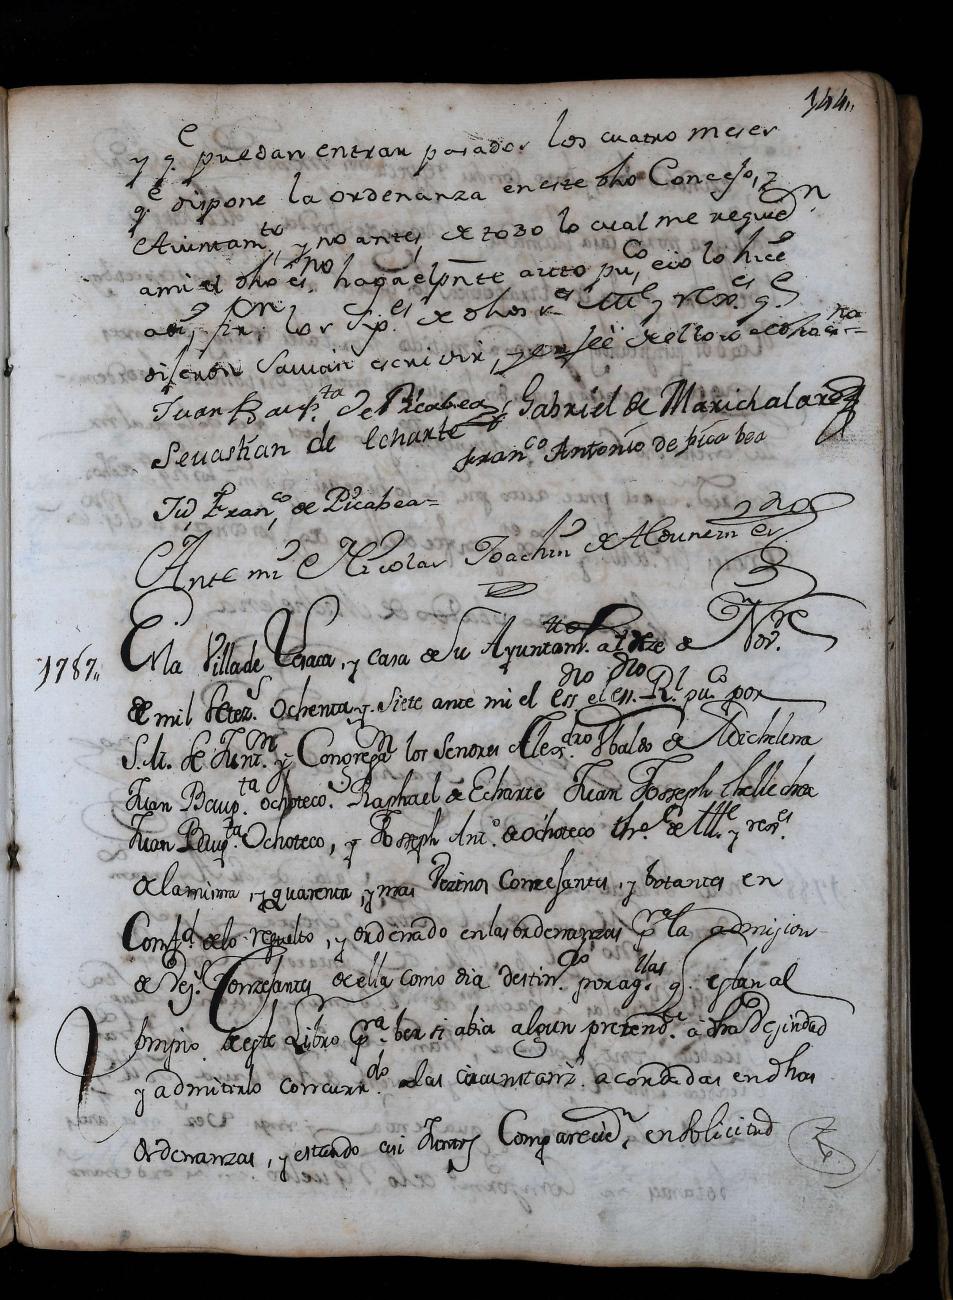 144,,
y q.e puedan entrar pasados los cuatro meses
q.e dispone la ordenanza en este dho Concejo, y
Aiuntam.to y no antes, de todo lo cual me requie.n
a mi el dho es.no haga el pnte auto pu.co e io lo hice
asi, y fir.on los S.p.es de dhos s.es Alld.e y rexs.es q.e
dijeron Savian escrivir, y en feè de ello io el dho es.no =
Juan Baup.ta de Picabea Gabriel de Marichalar
Sevastian de Echarte
Fran.co Antonio de picabea
Ju.o Fran.co de Picabea =
Ante mi Nicolas Joachin de Alduncin es.no
1787,,
En la Villa de Vera, y casa de su Ayuntam.to a siete de Nov.re
de mil setez.s ochenta y siete ante mi el ess.no R.l pu.co por
S. M. se Junt.n y Congreg.n los Señores Alex.dro Ubaldo de Michelena
Juan Baup.ta ochoteco, Raphael de Echarte Juan Josseph thellechea
Juan Baup.ta Ochoteco, y Josseph Ant.o de ochoteco the.e de Alld.e y rex.es
de la misma, y quarenta, y mas Vezinos Concejantes, y botantes en
Conf.d de lo resuelto, y ordenado en las ordenanzas p.ra la admision
de Vez.s Conzejantes de ella como dia destin.do por aq.llas q.e estan al
prinzipio de este Libro p.ra ber si abia algun pretend.te a dha Vezindad
y admitirlo concurr.do las circunstanz.s acordadas en dhas
ordenanzas, y estando asi Juntos Compareciò en solicitud